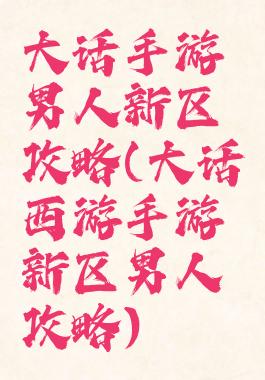 大话手游
男人新区
攻略(大话
西游手游
新区男人
攻略)